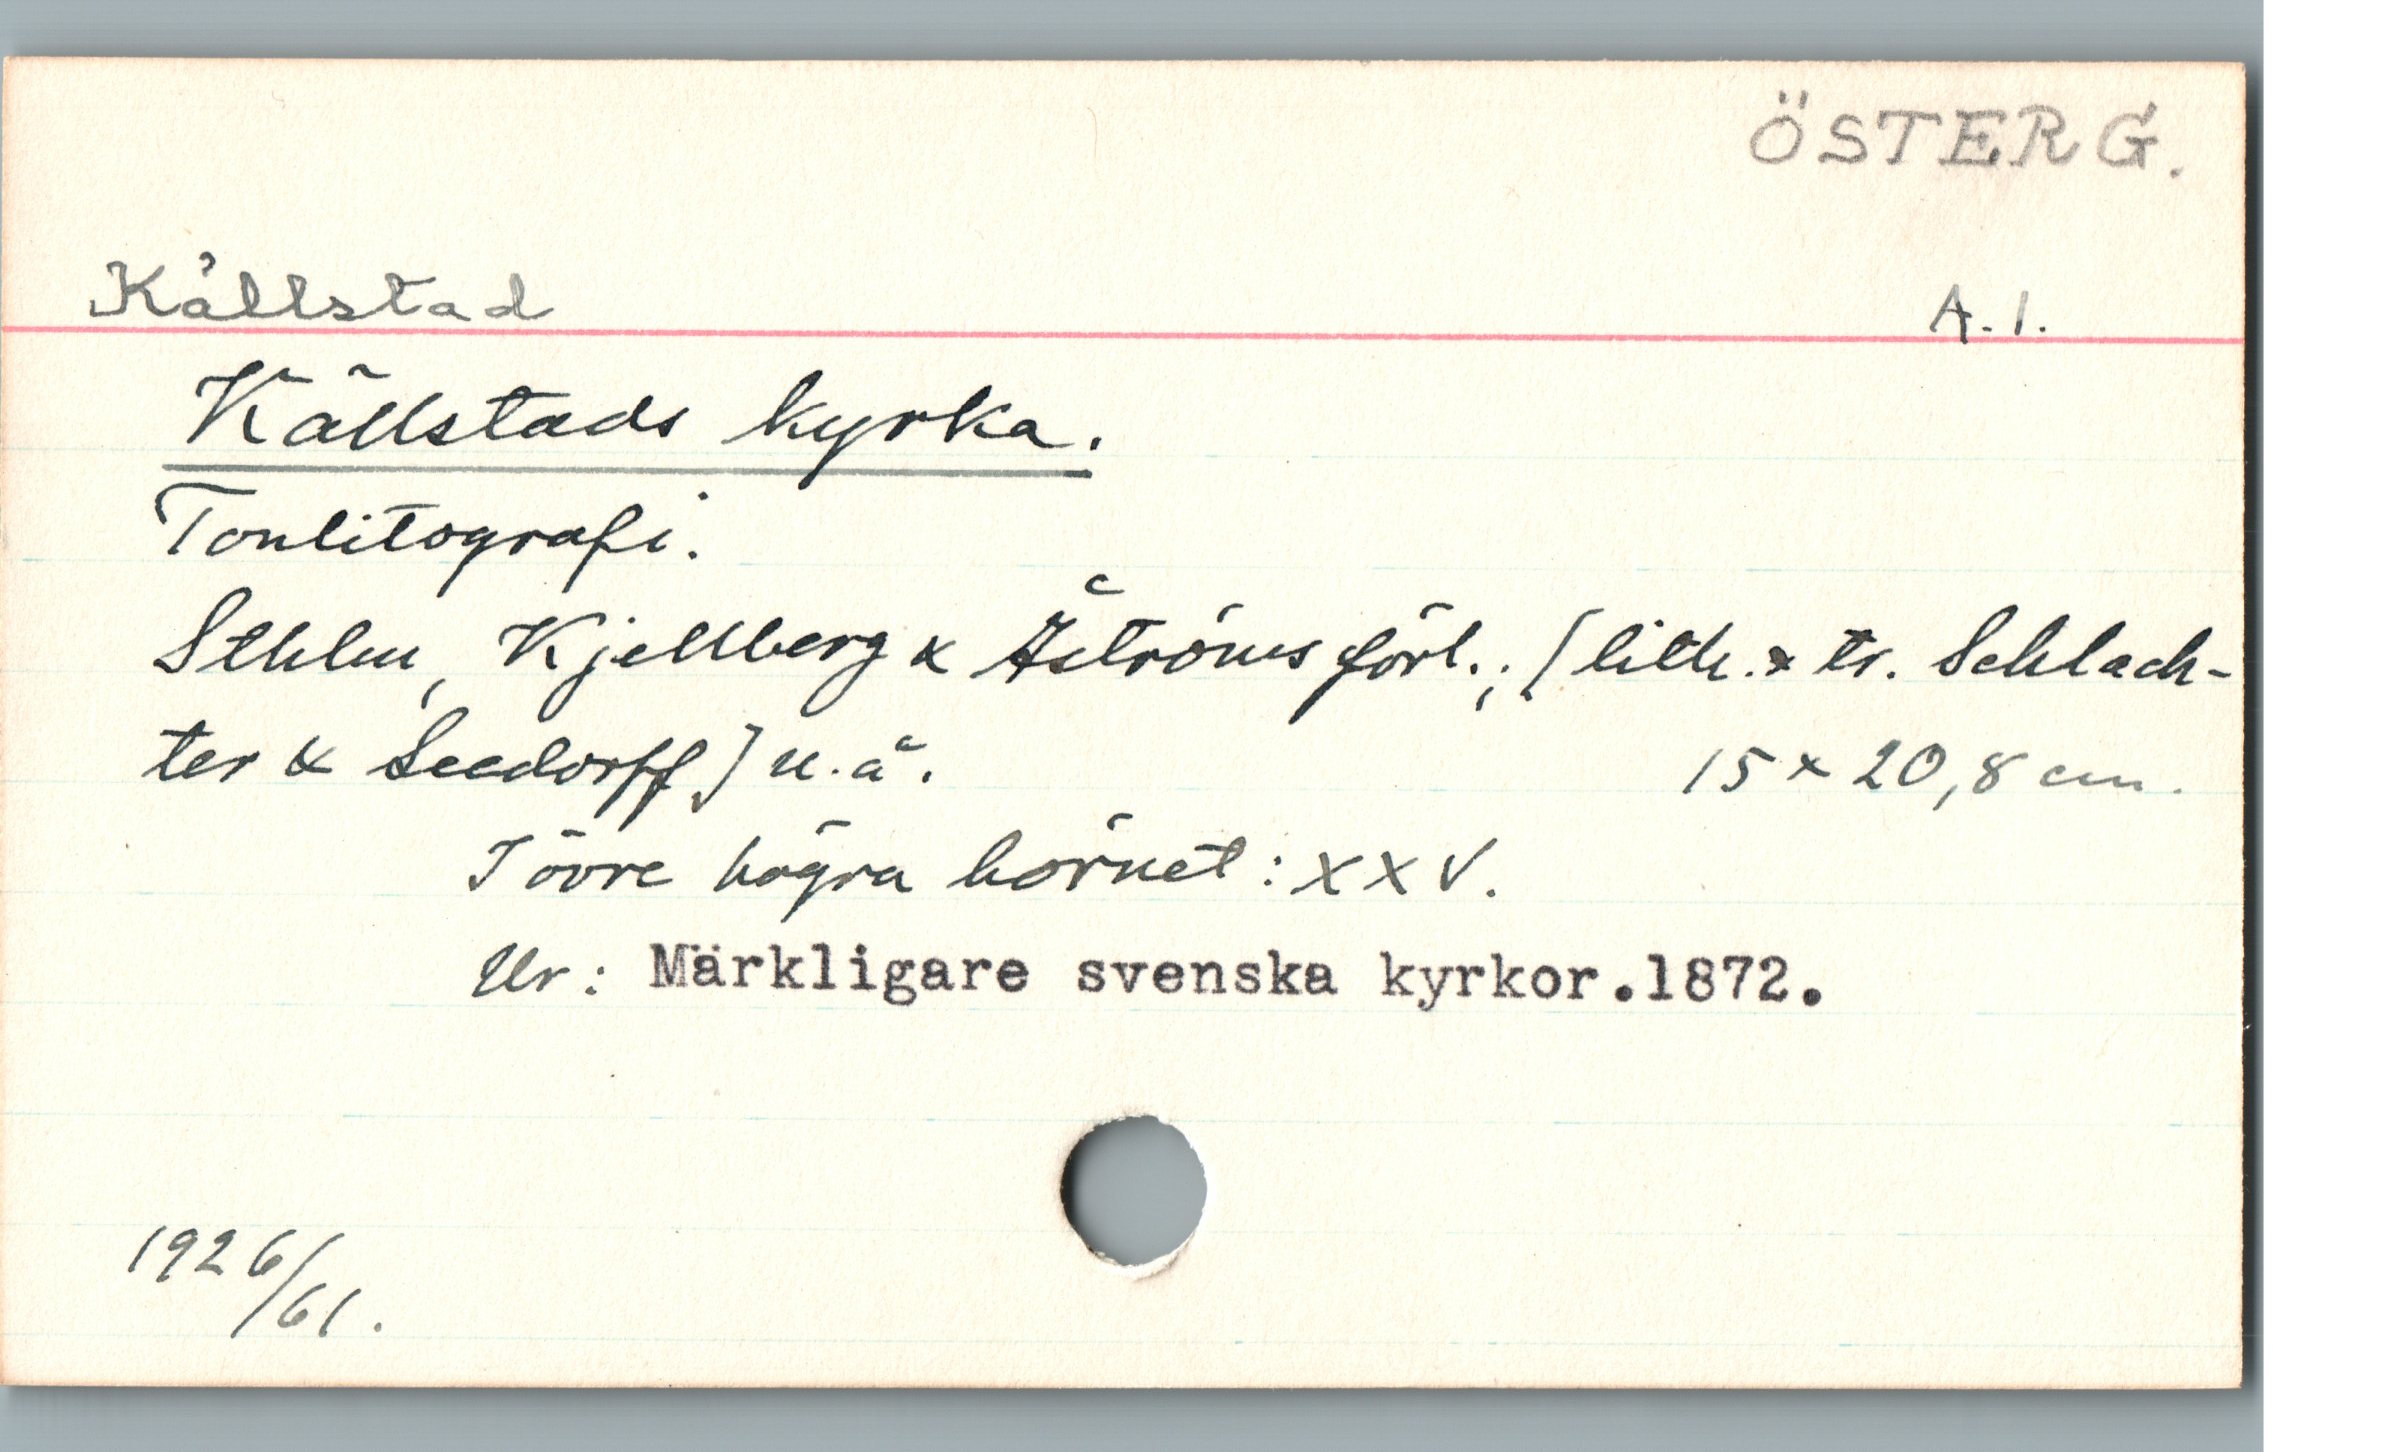 ÖSTERG.
Källstad A.1.
Källstads kyrka.
Tonlitografi.
Sthlm, Kjellberg & Åströms förl.; [lith. & tr. Schlach-
ter & Seedorff] u.å. 15 x 20,8 cm.
I övre högra hörnet: XXV.
Ur: Märkligare svenska kyrkor.1872.
1926/61.